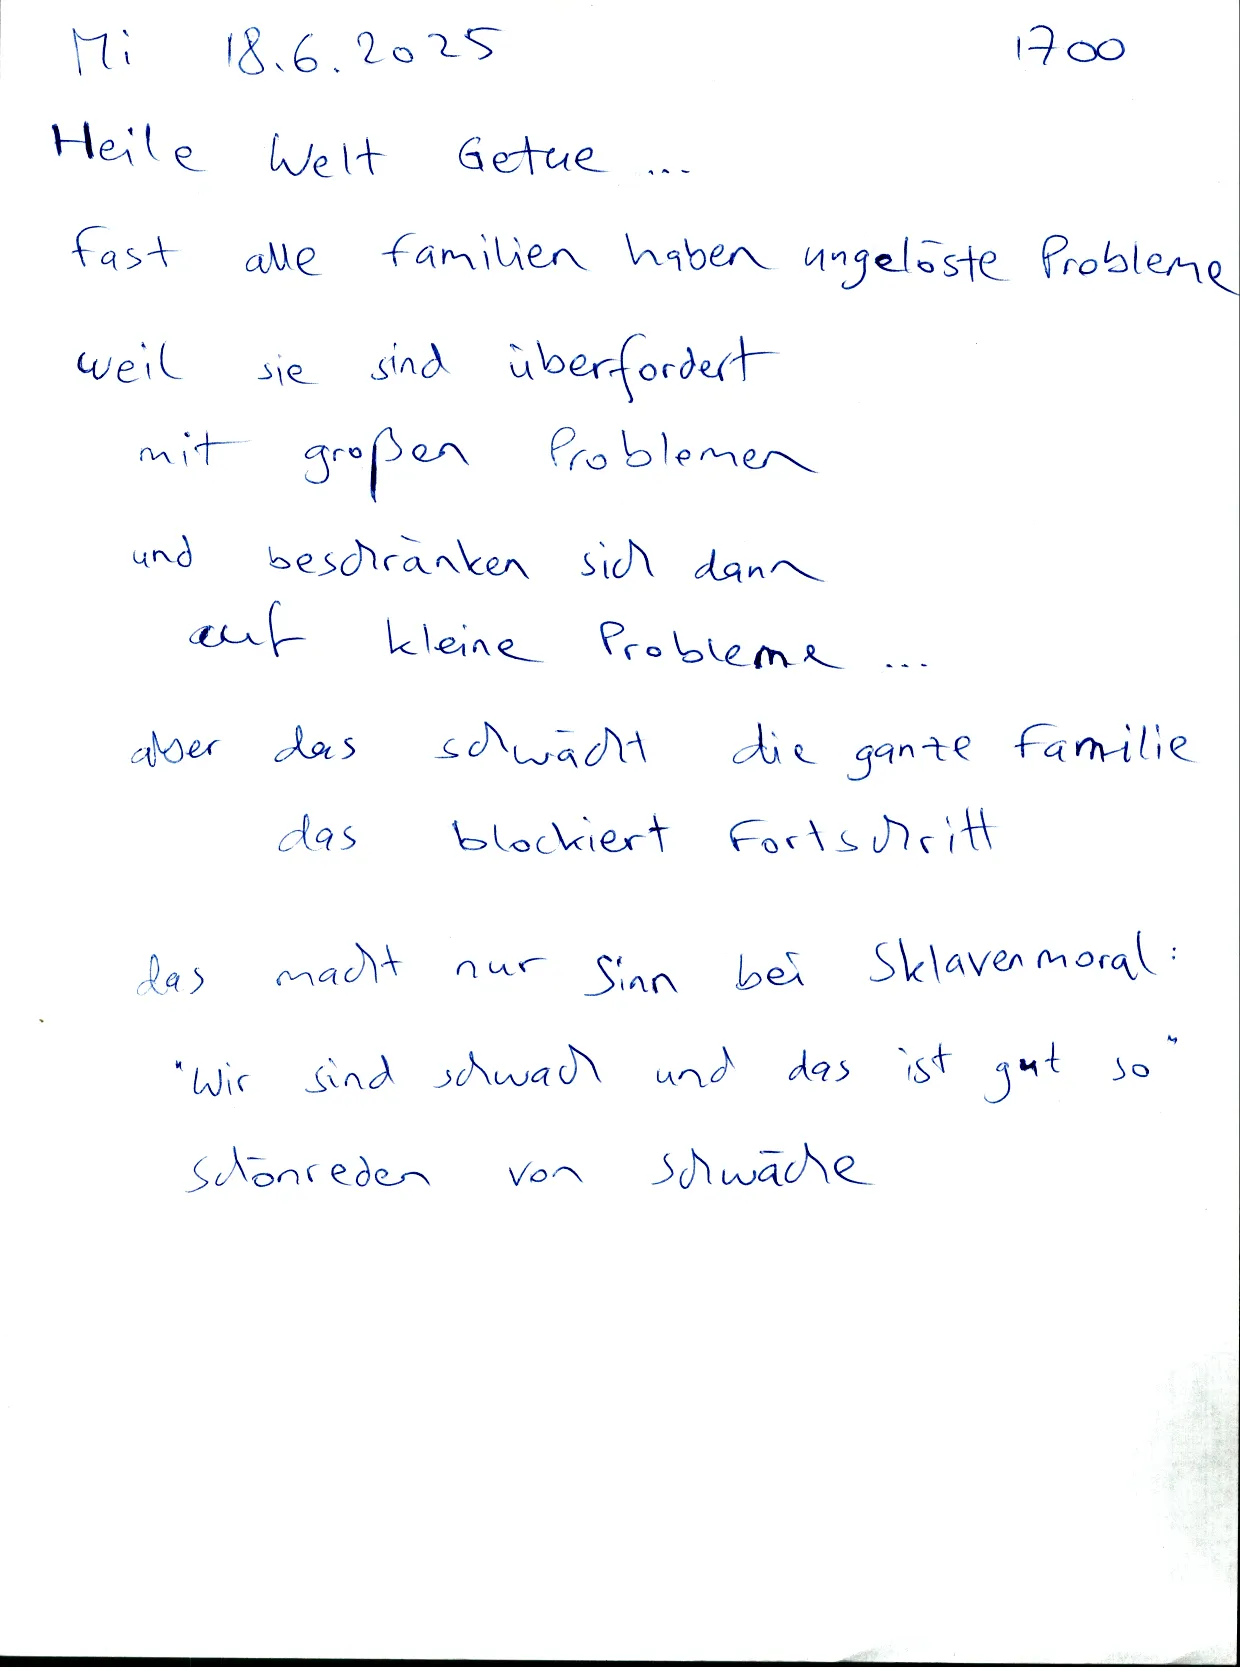 Mi 18.6.2025 1700
Heile Welt Getue ...
fast alle familien haben ungelöste Probleme
weil sie sind überfordert
mit großen Problemen
und beschränken sich dann
auf kleine Probleme ...
aber das schwächt die ganze Familie
das blockiert Fortschritt
das macht nur Sinn bei Sklavenmoral:
"Wir sind schwach und das ist gut so"
Schönreden von Schwäche